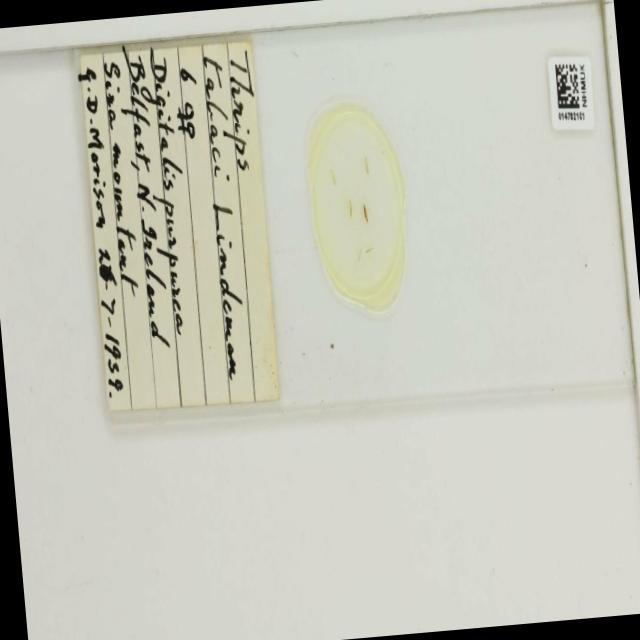 Thrips
tabaci Lindeman
6 ♀♀
Digitalis purpurea
Belfast, N. Ireland
Sira mountant
G.D. Morison 7-1939.
NHMUK
014702151